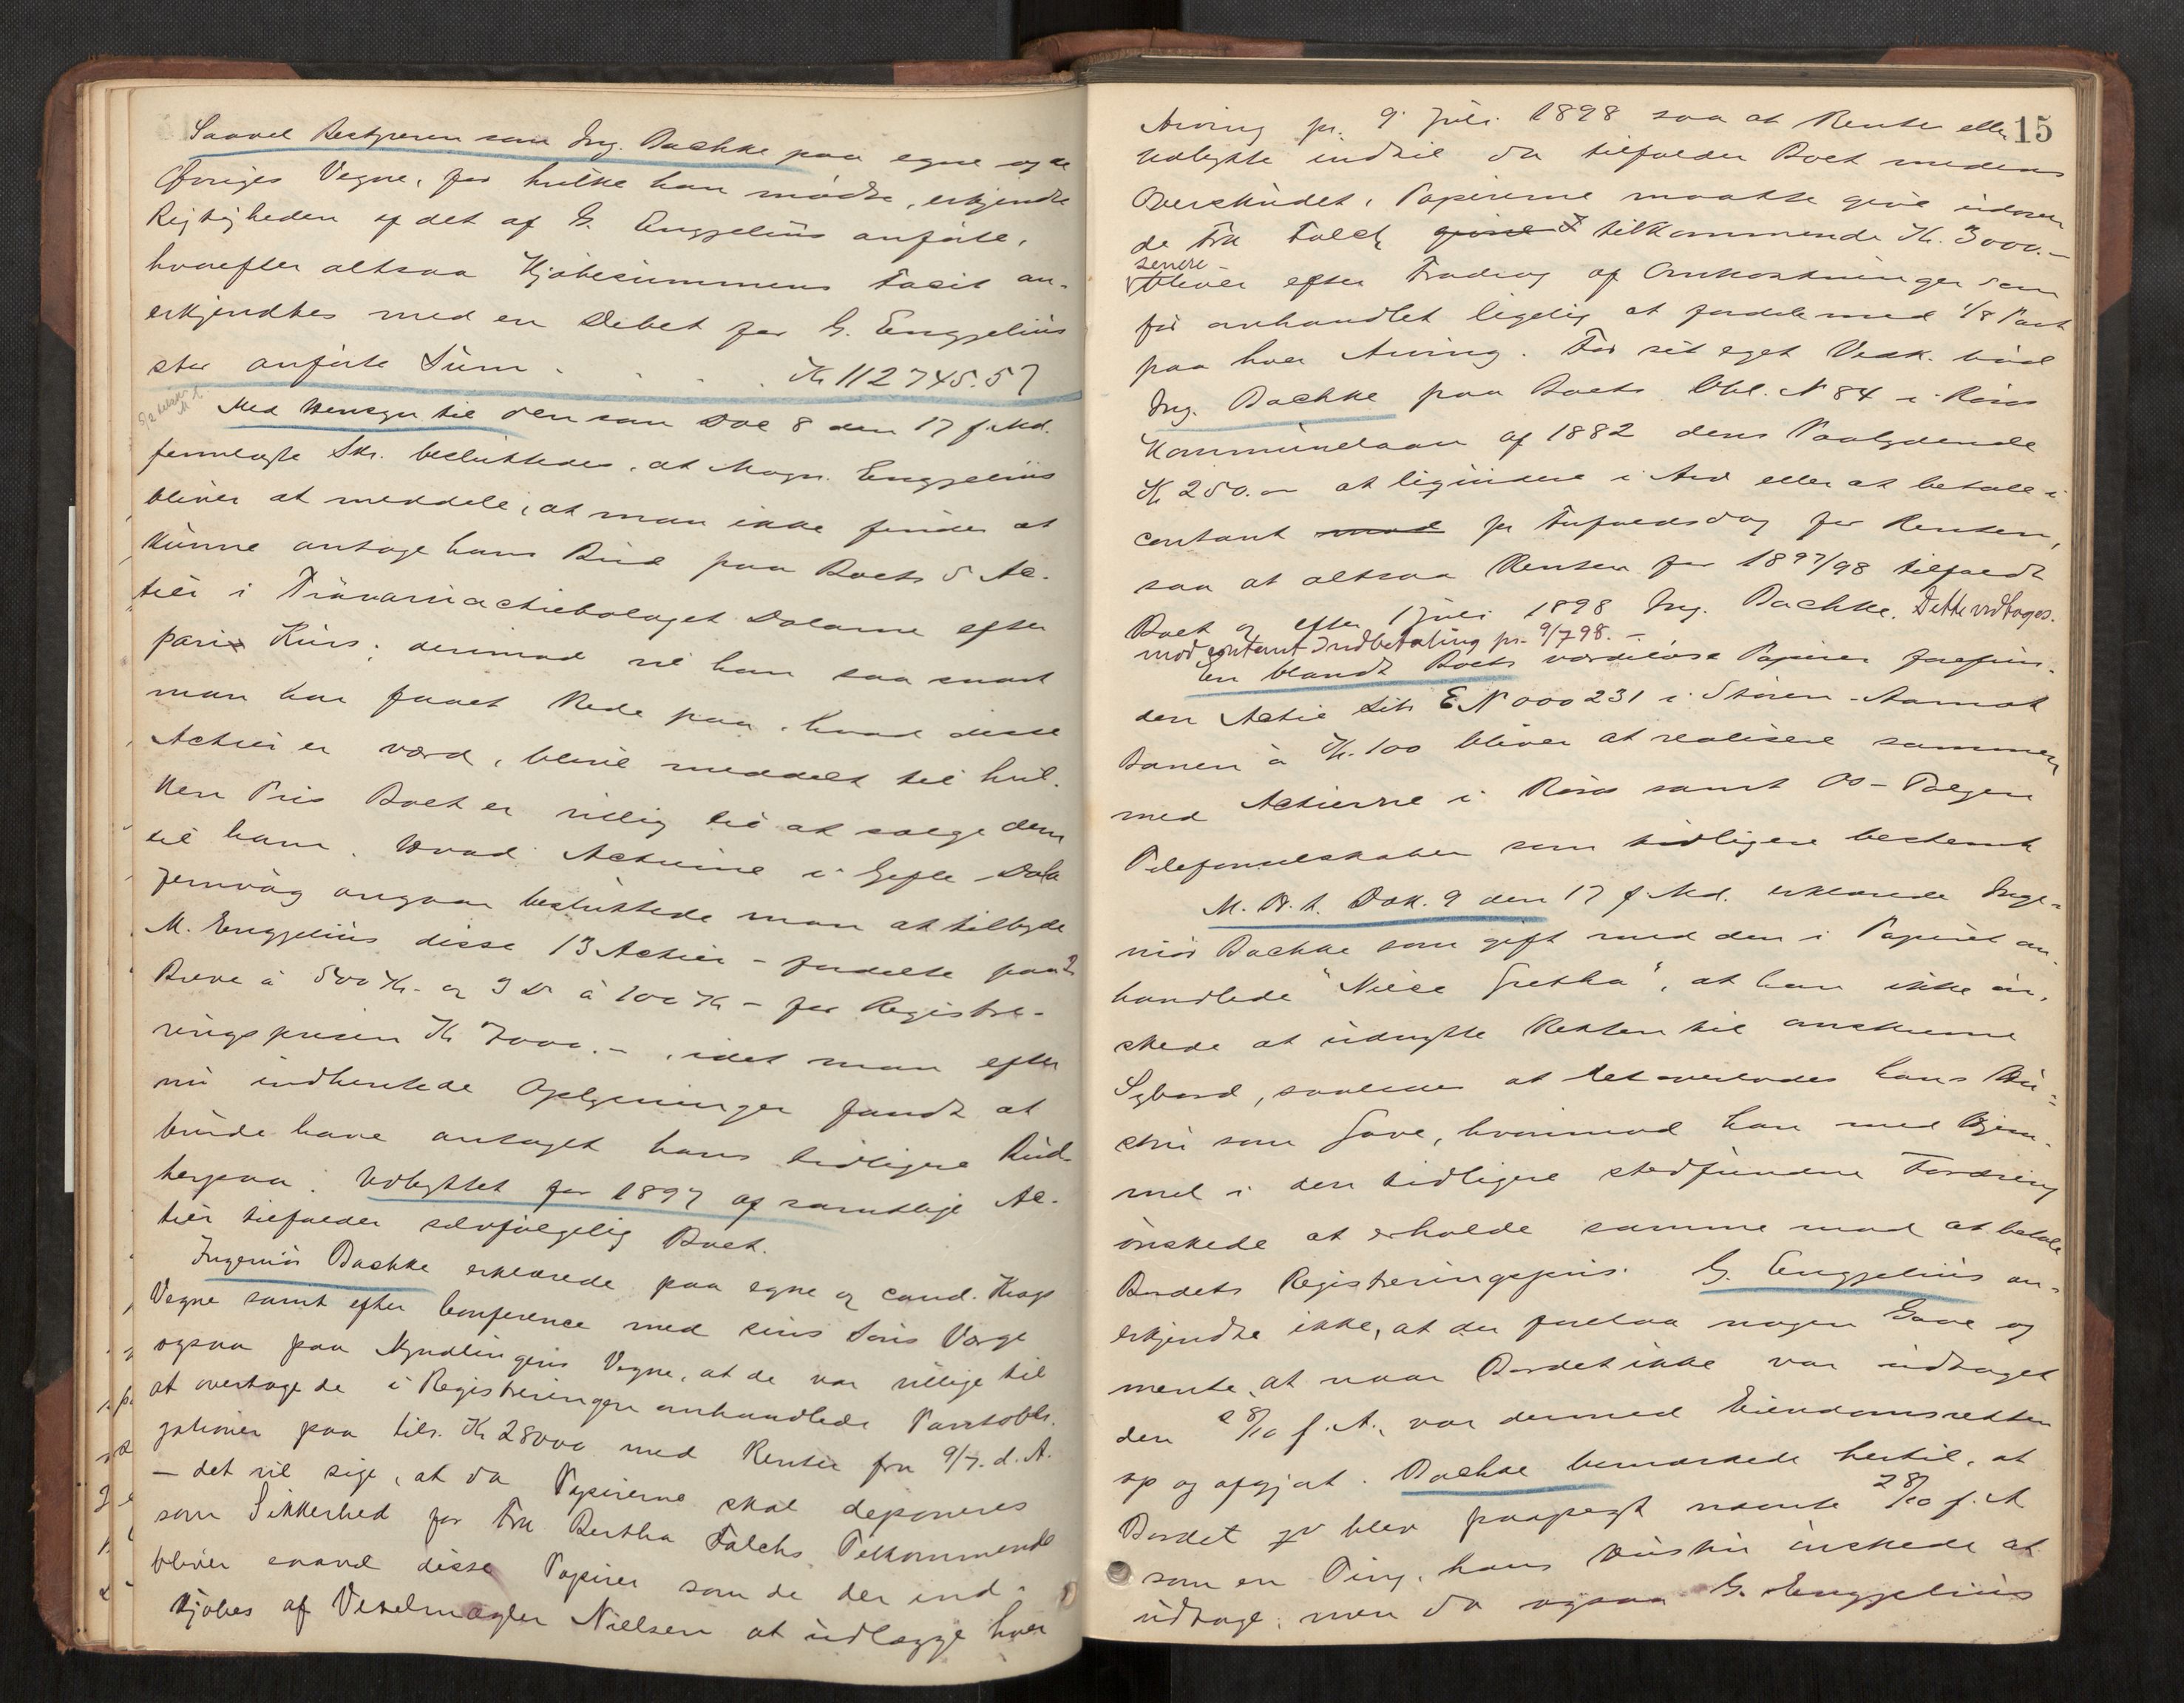 Saavel Bestyreren som Ing. Bachke paa egne og de
Øvriges Vegne, for hvilke han mødte, erkjendte
Rigtigheden af det af G. Engzelius anførte,
hvorefter altsaa Kjøbesummens Facit an-
erkjendtes med en Debet for G. Engzelius
stor anførte Sum . . . . . Kr 112745.57
Med Hensyn til den som Doc 8 den 17 f. Md.
fremlagte Skr. besluttedes, at Magn. Engzelius
bliver at meddele, at man ikke finder at
kunne antage hans Bud paa Boets 5 Ac-
tier i Trävaruactiebolaget Dalarne efter
pari Kurs; derimod vil han saa snart
man har faaet Rede paa, hvad disse
Actier er værd, blive meddelt til hvil-
ken Pris Boet er villig til at sælge dem
til ham. Hvad Actierne i Gefle Dala
Jernväg angaar besluttede man at tilbyde
M. Engzelius disse 13 Actier - fordelte paa 2
Breve à 500 Kr. og 3 Do à 100 Kr - for Registre-
ringsprisen Kr 7000.-, idet man efter
nu indhentede Oplysninger fandt at
burde have antaget hans tidligere Bud
herpaa. Udbyttet for 1897 af samtlige Ac-
tier tilfalder selvfølgelig Boet.
Ingeniør Bachke erklærede paa egne og cand. Krags
Vegne samt efter Conference med sins Søns Værge
ogsaa paa Myndlingens Vegne, at de var villige til
at overtage de i Registreringen omhandlede Pantobli-
gationer paa tils. Kr 28000 med Renter fra 9/7. d. A.
- det vil sige, at da Papirerne skal deponeres
som Sikkerhed for Fru Bertha Falchs Tilkommende
bliver saavel disse Papirer som de der ind-
kjøbes af Vexelmægler Nielsen at udlægge hver
15
Arving pr. 9. Juli 1898 saa at Rente eller
Udbytte indtil da tilfalder Boet medens
Overskudet, Papirerne maatte give udover
de Fru Falch tilkommende Kr. 3000.-
senere
bliver efter Fradrag af Omkostninger som
før omhandlet ligelig at fordele med 1/8 Part
paa hver Arving. For sit eget Vedk. bød
Ing. Bachke paa Boets Obl. N 84 i Røros
Kommunelaan af 1882 dens Paalydende
Kr 250.- at liquidere i Arv eller at betale i
contant mod pr Forfaldsdag for Renten,
saa at altsaa Renten for 1897/98 tilfaldt
Boet og efter 1 Juli 1898 Ing. Bachke. Dette vedtoges.
mod contant Indbetaling pr. 9/7 98. -
En blandt Boets værdiløse Papirer forefun-
den Actie Litr E N 000231 i Støren-Aamot
Banen à Kr. 100 bliver at realisere sammen
med Actierne i Røros samt Os-Tolgen
Telefonselskaber som tidligere bestemt
M. H. t. Dok. 9 den 17 f. Md. erklærede Inge-
niør Bachke som gift med den i Papiret om-
handlede "Niece Gretha", at han ikke øn-
skede at udnytte Retten til omskrevne
Sybord, saaledes at det overlodes hans Hu-
stru som Gave, hvorimod han med Hjem-
mel i den tidligere stedfundne Fordeling
ønskede at erholde samme mod at betale
Bordets Registreringspris. G. Engzelius an-
erkjendte ikke, at der forelaa nogen Gave og
mente, at naar Bordet ikke var udtaget
den 28/10 f. A., var dermed Eiendomsretten
op og afgjort. Bachke bemærkede hertil, at
Bordet blev paapegt nævnte 28/10 f. A
som en Ting, hans Hustru ønskede at
udtage; men da ogsaa G. Engzelius